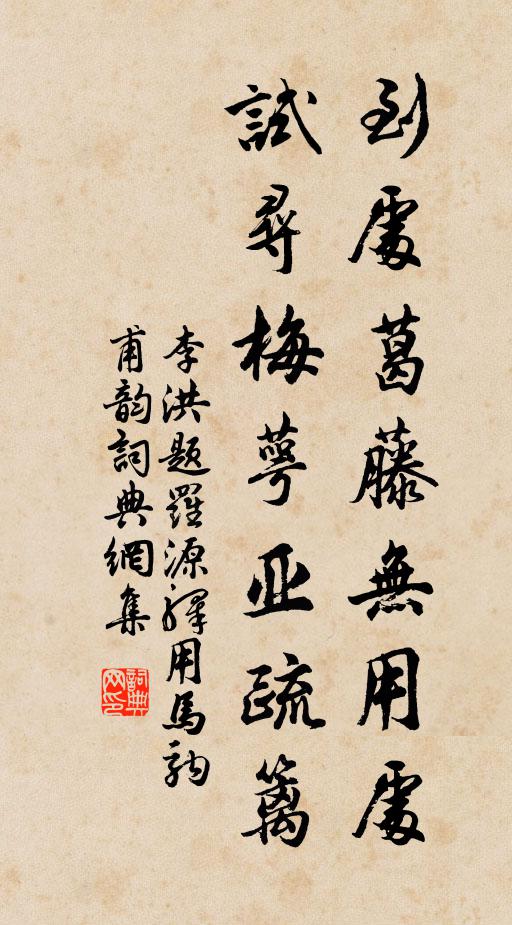 到處葛藤無用處
試尋梅萼亚疏籬
李洪题羅源驛用馬駒
甫韵詞典網集
詞典网印